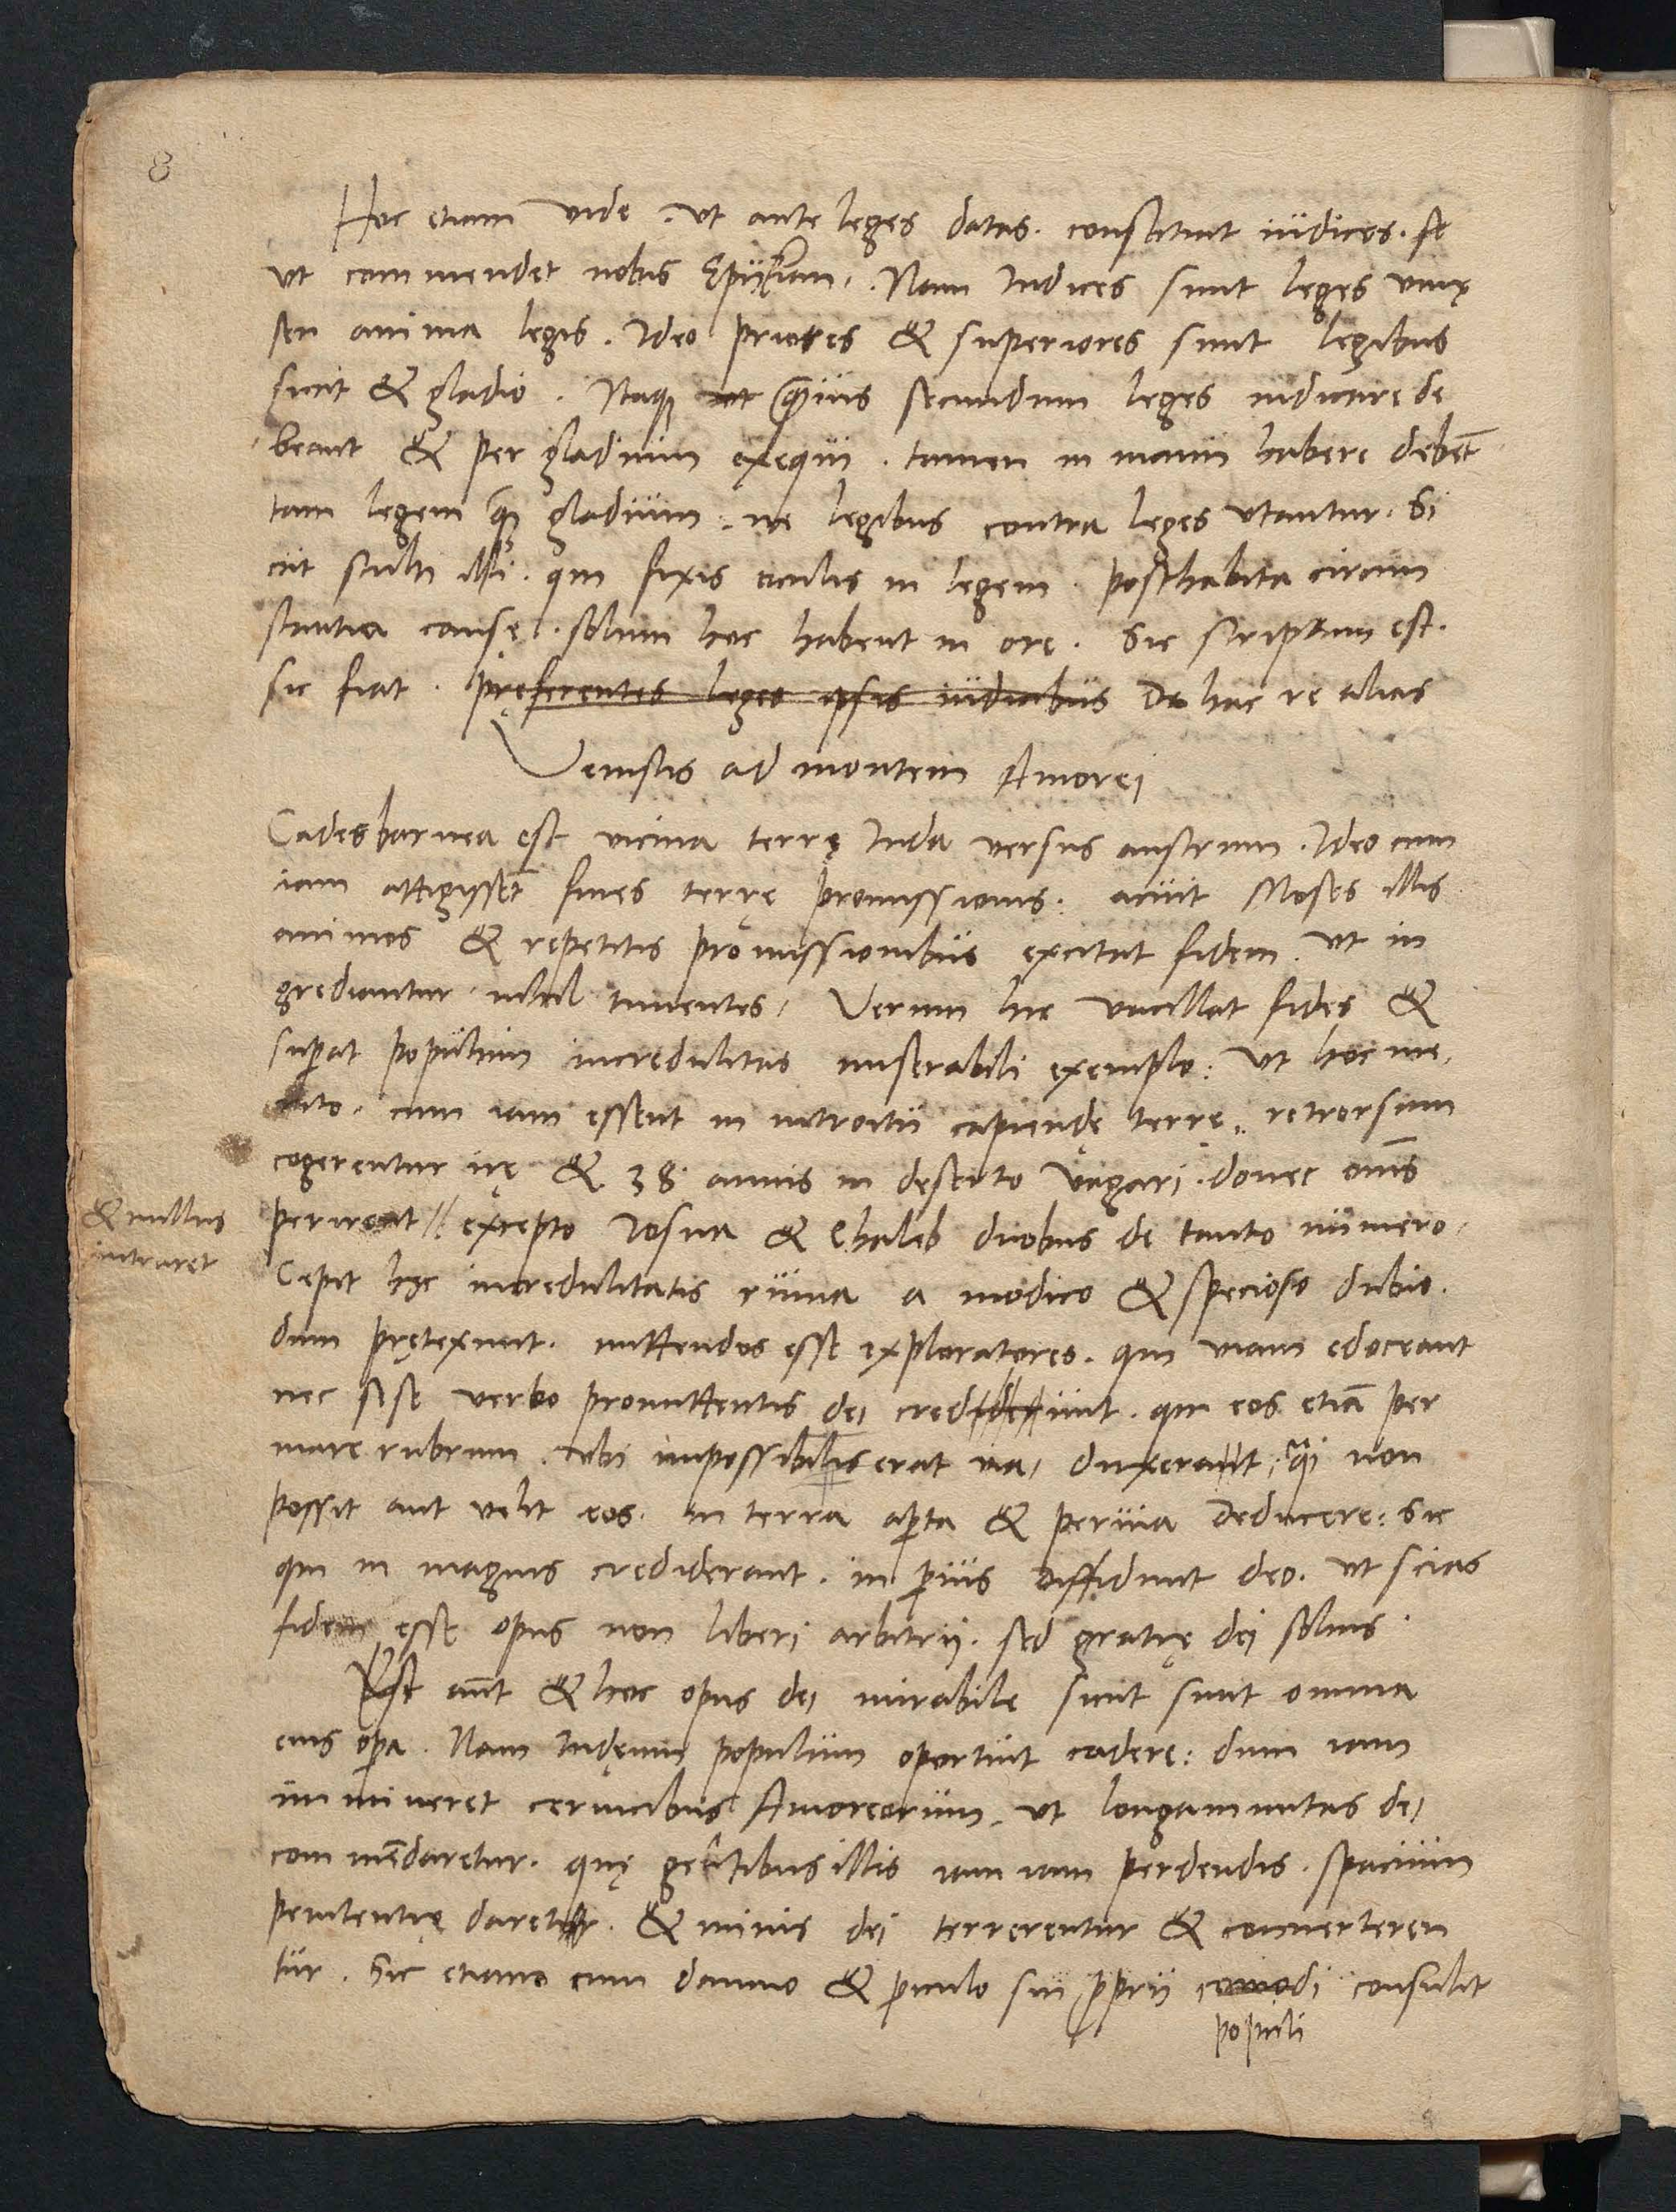 8
Hoc etiam vide . vt ante leges datas . constituit iudices . sc
vt commendet nobis Epijkiam . Nam Iudices sunt leges viuę
seu anima legis . Ideo priores & superiores sunt legibus
sicut & gladio . Itaq quis secundum leges iudicare de
beant & per gladium exequi . tamen in manu habere debēt
tam legem q̃ gladium . ne legibus contra leges vtantur . Si
cut stulti illi . qui fixis oculis in legem . posthabita circum
stantia causę . solum hoc habent in ore . Sic scriptum est .
sic fiat . pręferentes leges ipsis iudicibus De hac re alias
Venistis ad montem Amorei
Cades barnea est vicina terrę Iuda versus austrum . Ideo cum
iam attigissēt fines terrę promissionis : acuit Moses illis
animos & repetitis promissionibus excitat fidem . vt in
grediantur nihil timentes . Verum hic vacillat fides &
suꝑat populum incredulitas miserabili exemplo : vt hoc me
rito . cum iam essent in introitu capiendę terrę . retrorsum
cogerentur ire & 38 annis in deserto vagari . donec om̄s
& nullus
intraret
perirent // excepto Iosua & Chaleb duobus de tanto numero .
Cępit hęc incredulitatis ruina a modico & specioso dubio .
dum prętexunt . mittendos esse exploratores . qui viam edoceant
nec sese verbo promittentis dei credidunt . qui eos etiā per
mare rubrum . vbi impossibilis erat via , duxerat , q̃i non
possit aut velit eos . in terra aꝑta & peruia deducere : Sic
qui in magnis crediderant . in ꝑuis diffidunt deo . vt scias
fidem esse opus non liberi arbitrij . sed gratię dei solius .
Est aūt & hoc opus dei mirabile sicut sunt omnia
eius oꝑa . Nam Iudęum populum oportuit cadere : dum iam
immineret ceruicibus Amoreorum . vt longanimitas dei
commēdaretur . quę gentibus illis iam iam perdendis . spacium
penitentię daretur . & minis dei terrerentur & conuerteren
tur . Sic etiam cum damno & ꝑiculo sui ꝓprij comodi consulit
populi